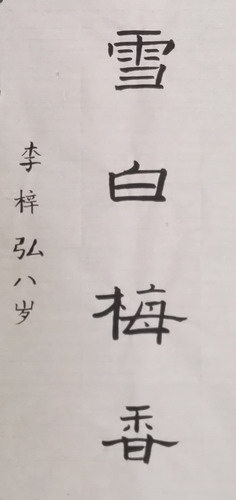 雪白梅香
李梓弘八岁